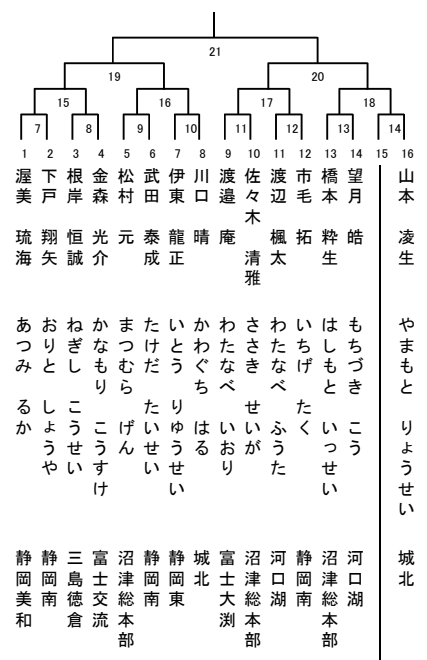 21
19
20
15
16
17
18
7
8
9
10
11
12
13
14
1 2 3 4 5 6 7 8 9 10 11 12 13 14 15 16
渥美 琉海 あつみ るか 静岡美和
下戸 翔矢 おりと しょうや 静岡南
根岸 恒誠 ねぎし こうせい 三島徳倉
金森 光介 かなもり こうすけ 富士交流
松村 元 まつむら げん 沼津総本部
武田 泰成 たけだ たいせい 静岡南
伊東 龍正 いとう りゅうせい 静岡東
川口 晴 かわぐち はる 城北
渡邉 庵 わたなべ いおり 富士大渕
佐々木 清雅 ささき せいが 沼津総本部
渡辺 楓太 わたなべ ふうた 河口湖
市毛 拓 いちげ たく 静岡南
橋本 粋生 はしもと いっせい 沼津総本部
望月 皓 もちづき こう 河口湖
山本 凌生 やまもと りょうせい 城北